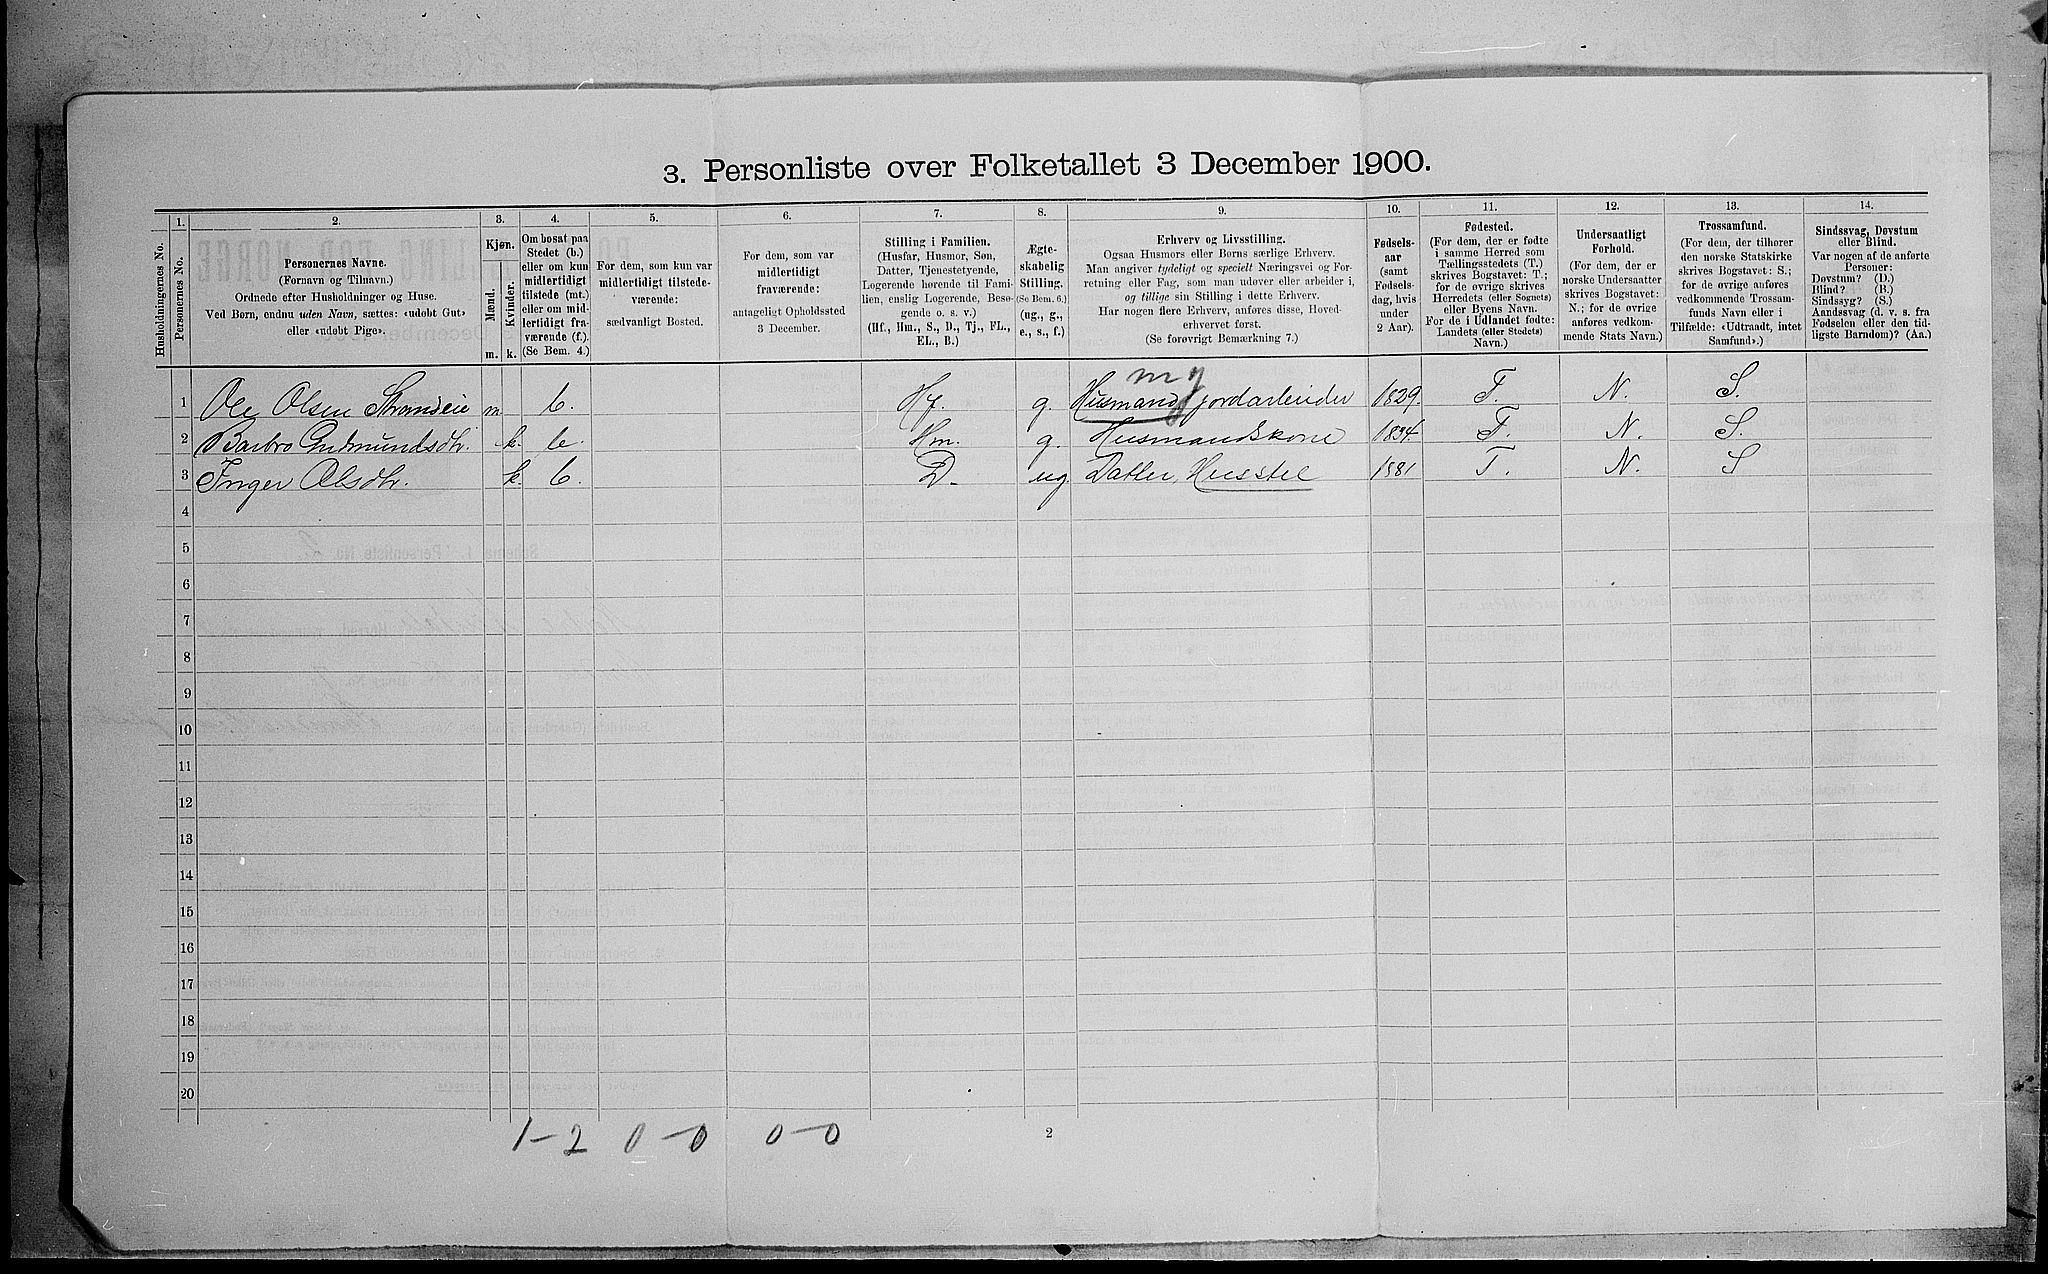 3. Personliste over Folketallet 3 December 1900.
1. 2. 3. 4. 5. 6. 7. 8. 9. 10. 11. 12. 13. 14.
Husholdningernes No.
Personernes No.
Personernes Navne.
(Fornavn og Tilnavn.)
Ordnede efter Husholdninger og Huse.
Ved Børn, endnu uden Navn, sættes: «udøbt Gut»
eller «udøbt Pige».
Kjøn.
Mænd.
Kvinder.
m. k.
Om bosat paa
Stedet (b.)
eller om kun
midlertidigt
tilstede (mt.)
eller om mid-
lertidigt fra-
værende (f.).
(Se Bem. 4.)
For dem, som kun var
midlertidigt tilstede-
værende:
sædvanligt Bosted.
For dem, som var
midlertidigt
fraværende:
antageligt Opholdssted
3 December.
Stilling i Familien.
(Husfar, Husmor, Søn,
Datter, Tjenestetyende,
Logerende hørende til Fami-
lien, enslig Logerende, Besø-
gende o. s. v.)
(Hf., Hm., S., D., Tj., FL.,
EL., B.)
Ægte-
skabelig
Stilling.
(Se Bem. 6.)
(ug., g.,
e., s., f.)
Erhverv og Livsstilling.
Ogsaa Husmors eller Børns særlige Erhverv.
Man angiver tydeligt og specielt Næringsvei og For-
retning eller Fag, som man udøver eller arbeider i,
og tillige sin Stilling i dette Erhverv.
Har nogen flere Erhverv, anføres disse, Hoved-
erhvervet først.
(Se forøvrigt Bemærkning 7.)
Fødsels-
aar
(samt
Fødsels-
dag, hvis
under
2 Aar).
Fødested.
(For dem, der er fødte
i samme Herred som
Tællingsstedets (T.)
skrives Bogstavet: T.;
for de øvrige skrives
Herredets (eller Sognets)
eller Byens Navn.
For de i Udlandet fødte:
Landets (eller Stedets)
Navn.)
Undersaatligt
Forhold.
(For dem, der er
norske Undersaatter
skrives Bogstavet:
N.; for de øvrige
anføres vedkom-
mende Stats Navn.)
Trossamfund.
(For dem, der tilhører
den norske Statskirke
skrives Bogstavet: S.;
for de øvrige anføres
vedkommende Trossam-
funds Navn eller i
Tilfælde: «Udtraadt, intet
Samfund».)
Sindssvag, Døvstum
eller Blind.
Var nogen af de anførte
Personer:
Døvstum? (D.)
Blind? (B.)
Sindssyg? (S.)
Aandssvag (d. v. s. fra
Fødselen eller den tid-
ligste Barndom)? (Aa.)
1 Ole Olsen Strandeie m. b. Hf. g. Husmand jordarbeider 1829. T. N. S.
2 Barbro Gudmundsdtr. k. b. Hm. g. Husmandskone 1834. T. N. S.
3 Inger Olsdtr. k. b. D. ug. Datter, Husstel 1881 T. N. S
4
5
6
7
8
9
10
11
12
13
14
15
16
17
18
19
20
1-2 0-0 0-0
2